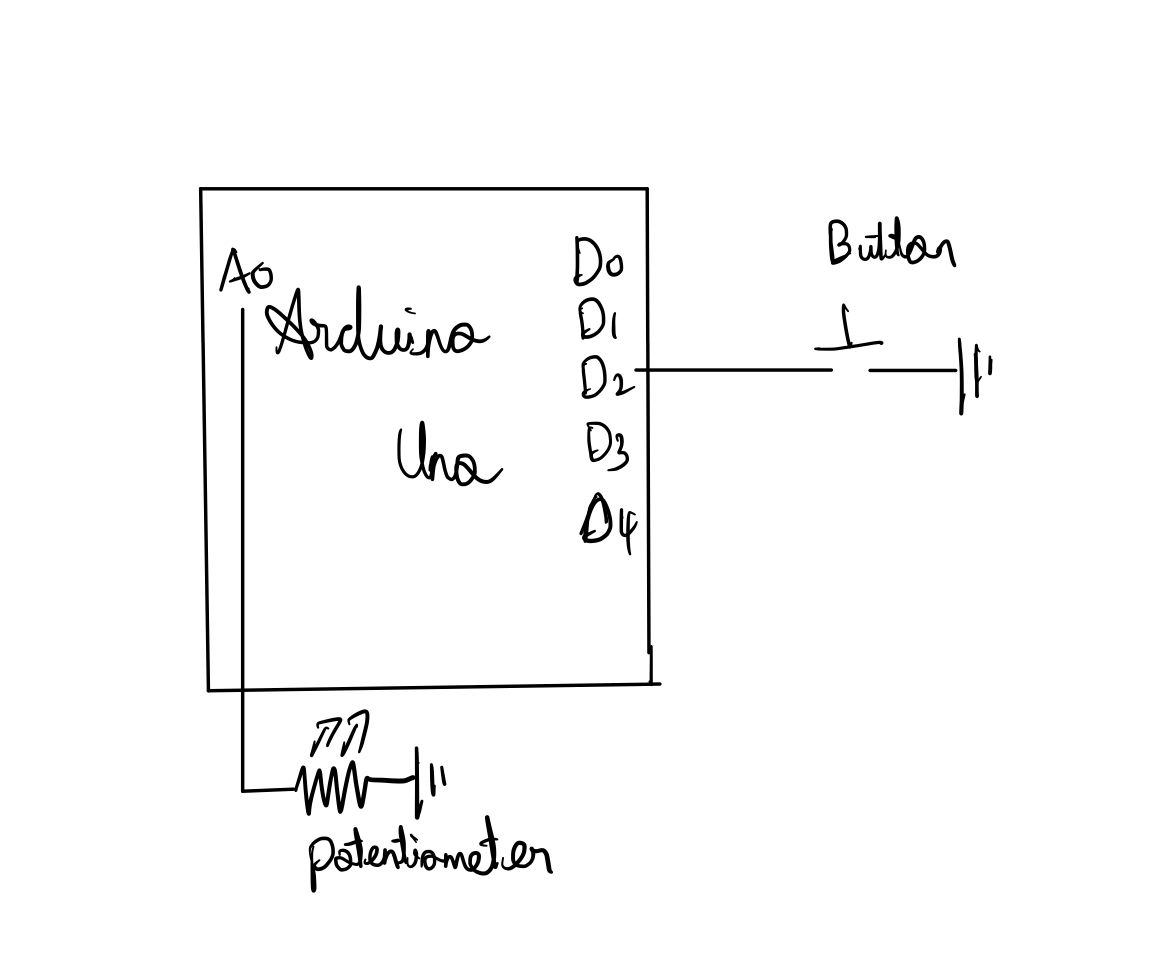 A0
Arduino
Uno
D0
D1
D2
D3
D4
Button
potentiometer